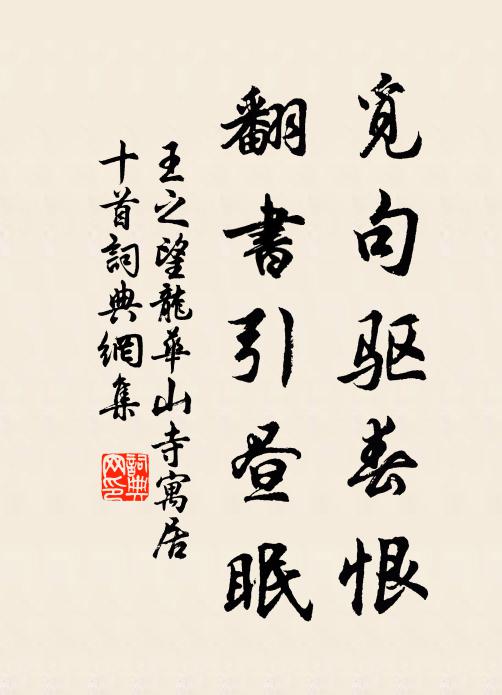 覓句驱春恨
翻書引昼眠
王之望龍華山寺寓居
十首詞典網集
詞典网印